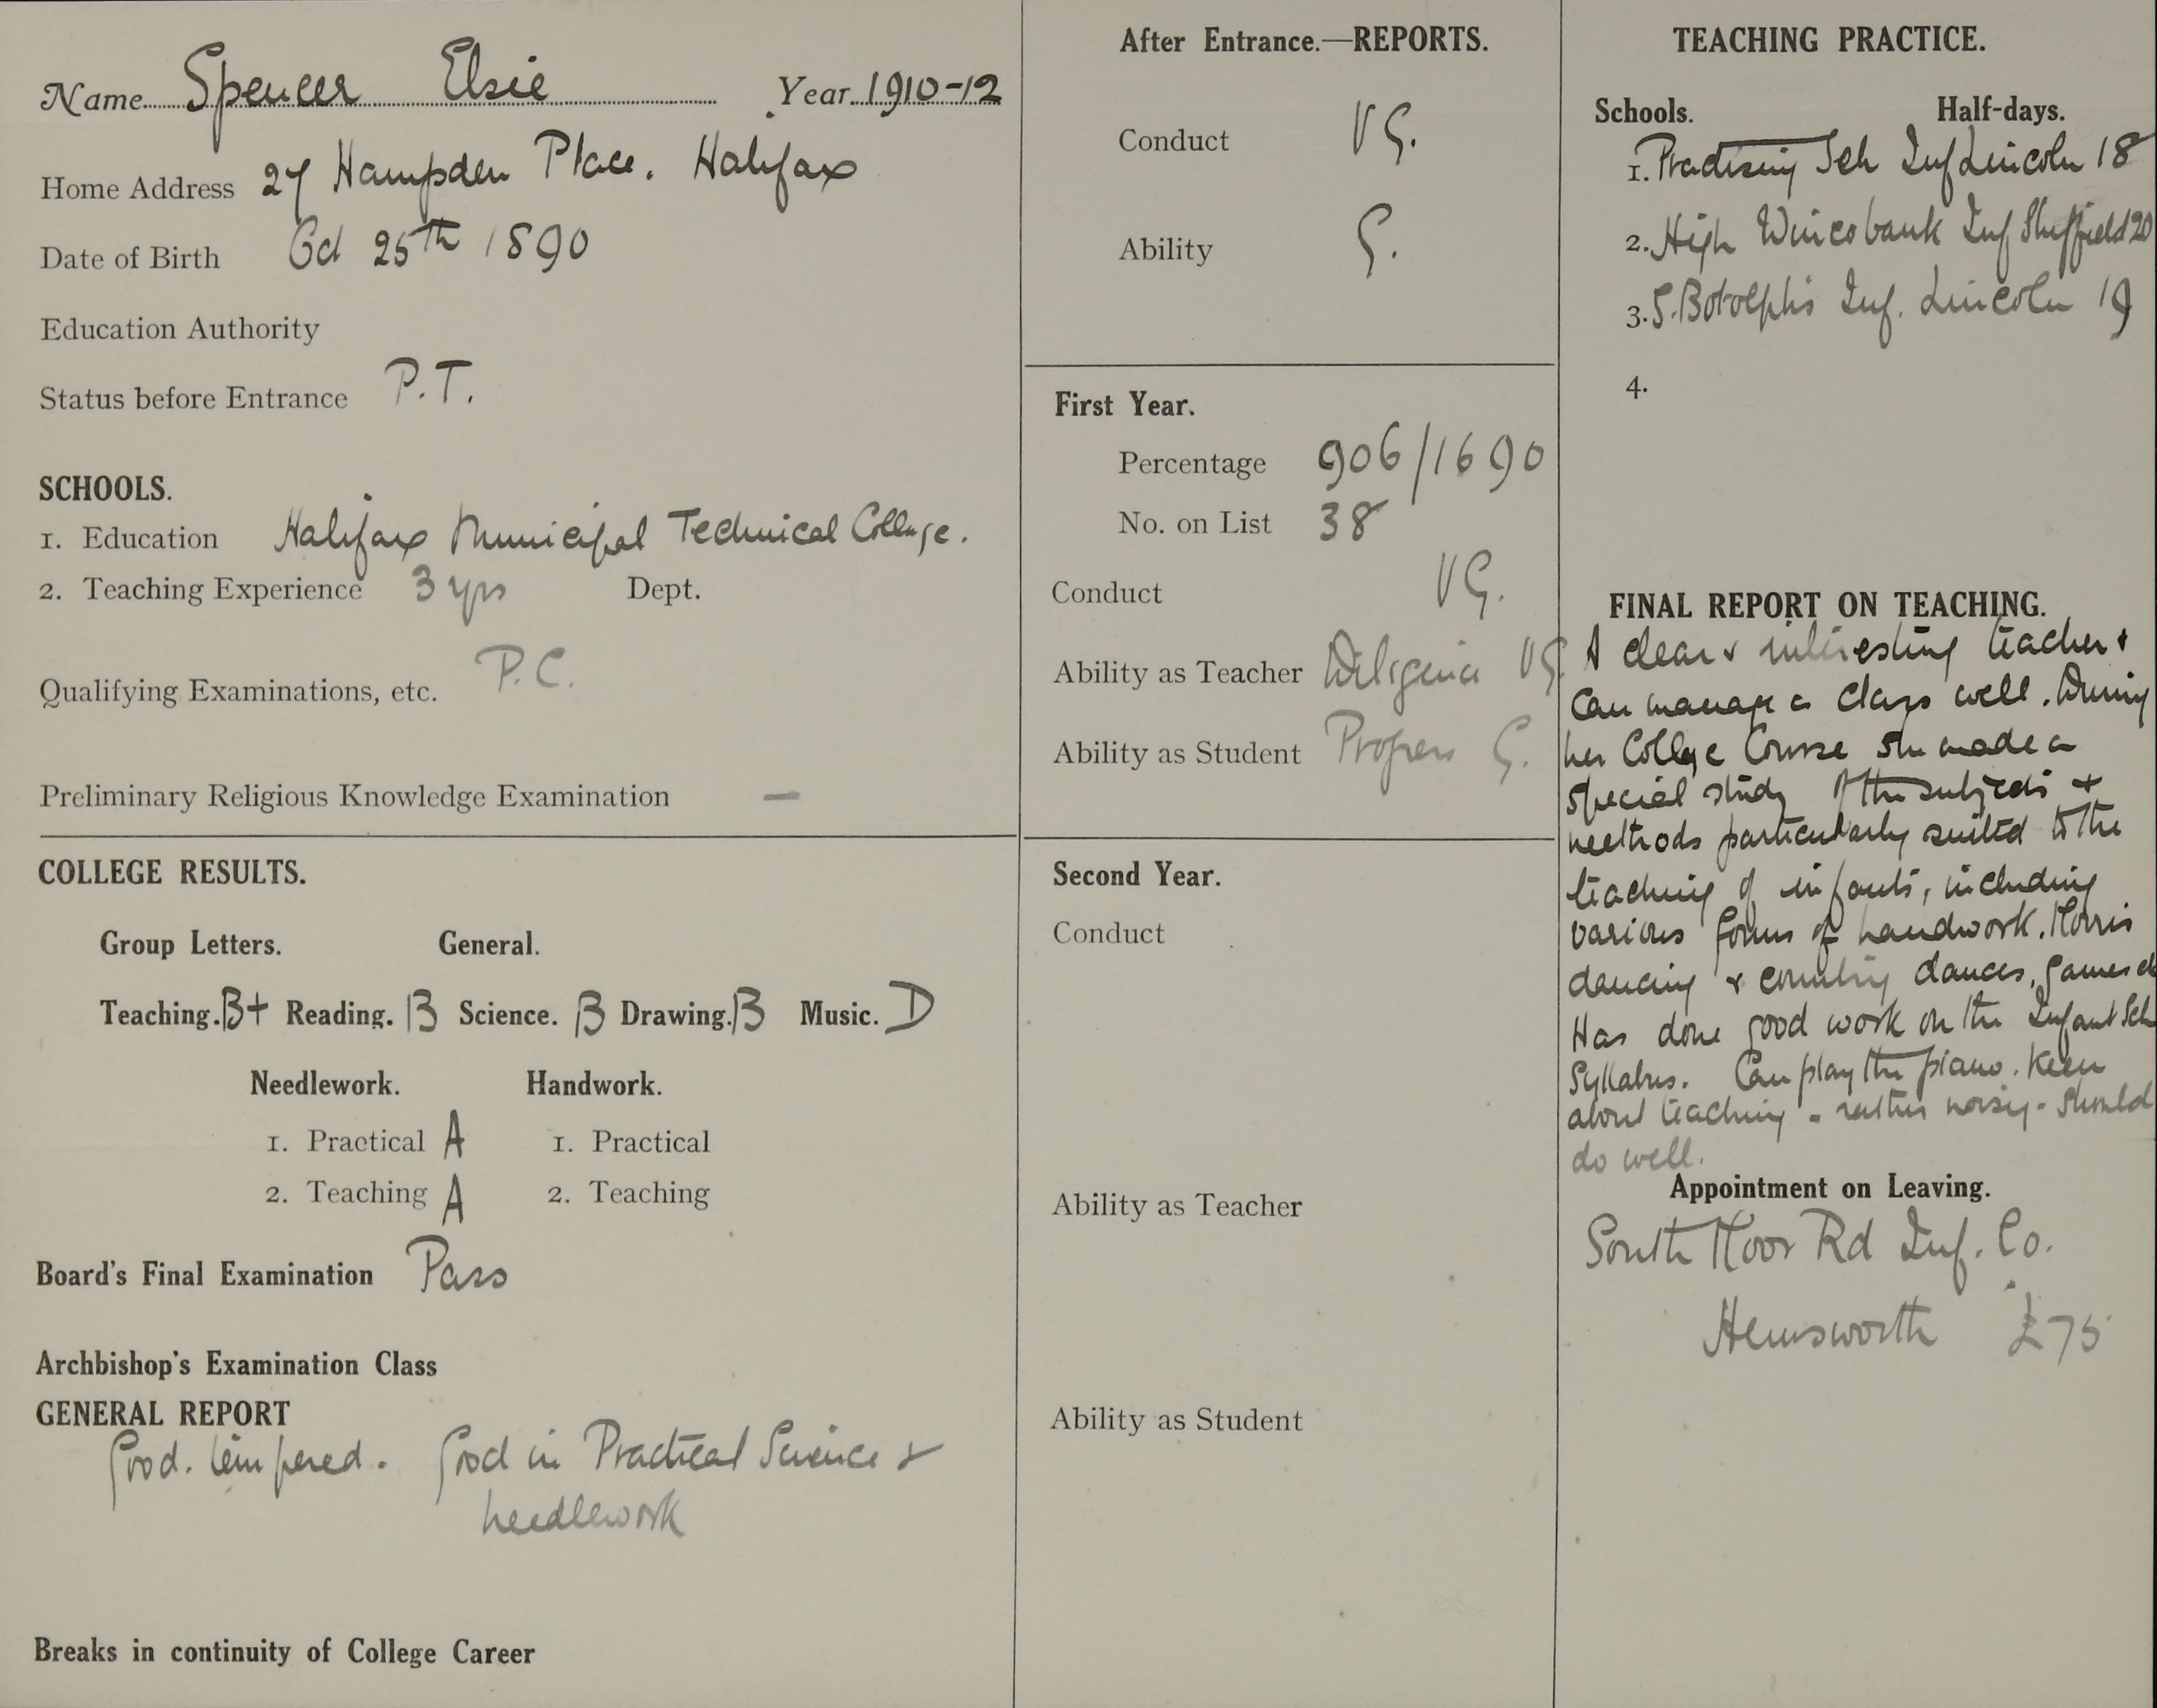 Name Spencer Elsie Year 1910-12
Home Address 27 Hampden Place. Halifax
Date of Birth Oct 25th 1890
Education Authority
Status before Entrance P.T.
SCHOOLS.
1. Education Halifax Municipal Technical College.
2. Teaching Experience 3 yrs Dept.
Qualifying Examinations, etc. P.C.
Preliminary Religious Knowledge Examination —
COLLEGE RESULTS.
Group Letters. General.
Teaching. B+ Reading. B Science. B Drawing. B Music. D
Needlework. Handwork.
1. Practical A 1. Practical
2. Teaching A 2. Teaching
Board's Final Examination Pass
Archbishop's Examination Class
GENERAL REPORT
Good. tempered. Good in Practical Science &
needlework
Breaks in continuity of College Career
After Entrance.—REPORTS.
Conduct VG.
Ability G.
First Year.
Percentage 906/1690
No. on List 38
Conduct VG.
Ability as Teacher Diligence VG
Ability as Student Progress G.
Second Year.
Conduct
Ability as Teacher
Ability as Student
TEACHING PRACTICE.
Schools. Half-days.
1. Practising Sch Inf Lincoln 18
2. High Wincobank Inf Sheffield 20
3. S. Botolph's Inf. Lincoln 19
4.
FINAL REPORT ON TEACHING.
A clear & interesting teacher &
can manage a class well. During
her College Course she made a
special study of the subjects &
methods particularly suited to the
teaching of infants, including
various forms of handwork. Morris
dancing & country dances, games etc
Has done good work on the Infant Sch
Syllabus. Can play the piano. Keen
about teaching - rather noisy - should
do well.
Appointment on Leaving.
South Moor Rd Inf. Co.
Hemsworth £75